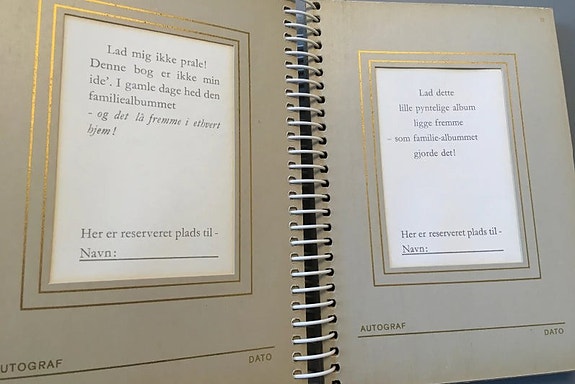 Lad mig ikke prale!
Denne bog er ikke min
ide'. I gamle dage hed den
familiealbummet
- og det lå fremme i ethvert
hjem!
Her er reserveret plads til -
Navn:
UTOGRAF
DATO
Lad dette
lille pyntelige album
ligge fremme
– som familie-albummet
gjorde det!
Her er reserveret plads til -
Navn:
AUTOGRAF
DATO